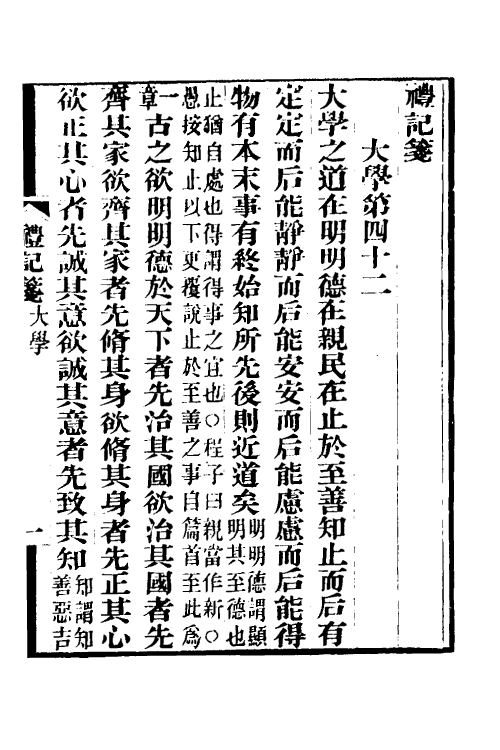 禮記箋
大學第四十二
大學之道在明明德在親民在止於至善知止而后有
定定而后能靜靜而后能安安而后能慮慮而后能得
物有本末事有終始知所先後則近道矣明明德謂顯
明其至德也
止猶自處也得謂得事之宜也○程子曰親當作新○
愚按知止以下更覆說止於至善之事自篇首至此爲
一
章
古之欲明明德於天下者先治其國欲治其國者先
齊其家欲齊其家者先脩其身欲脩其身者先正其心
欲正其心者先誠其意欲誠其意者先致其知知謂知
善惡吉
禮記箋 大學 一